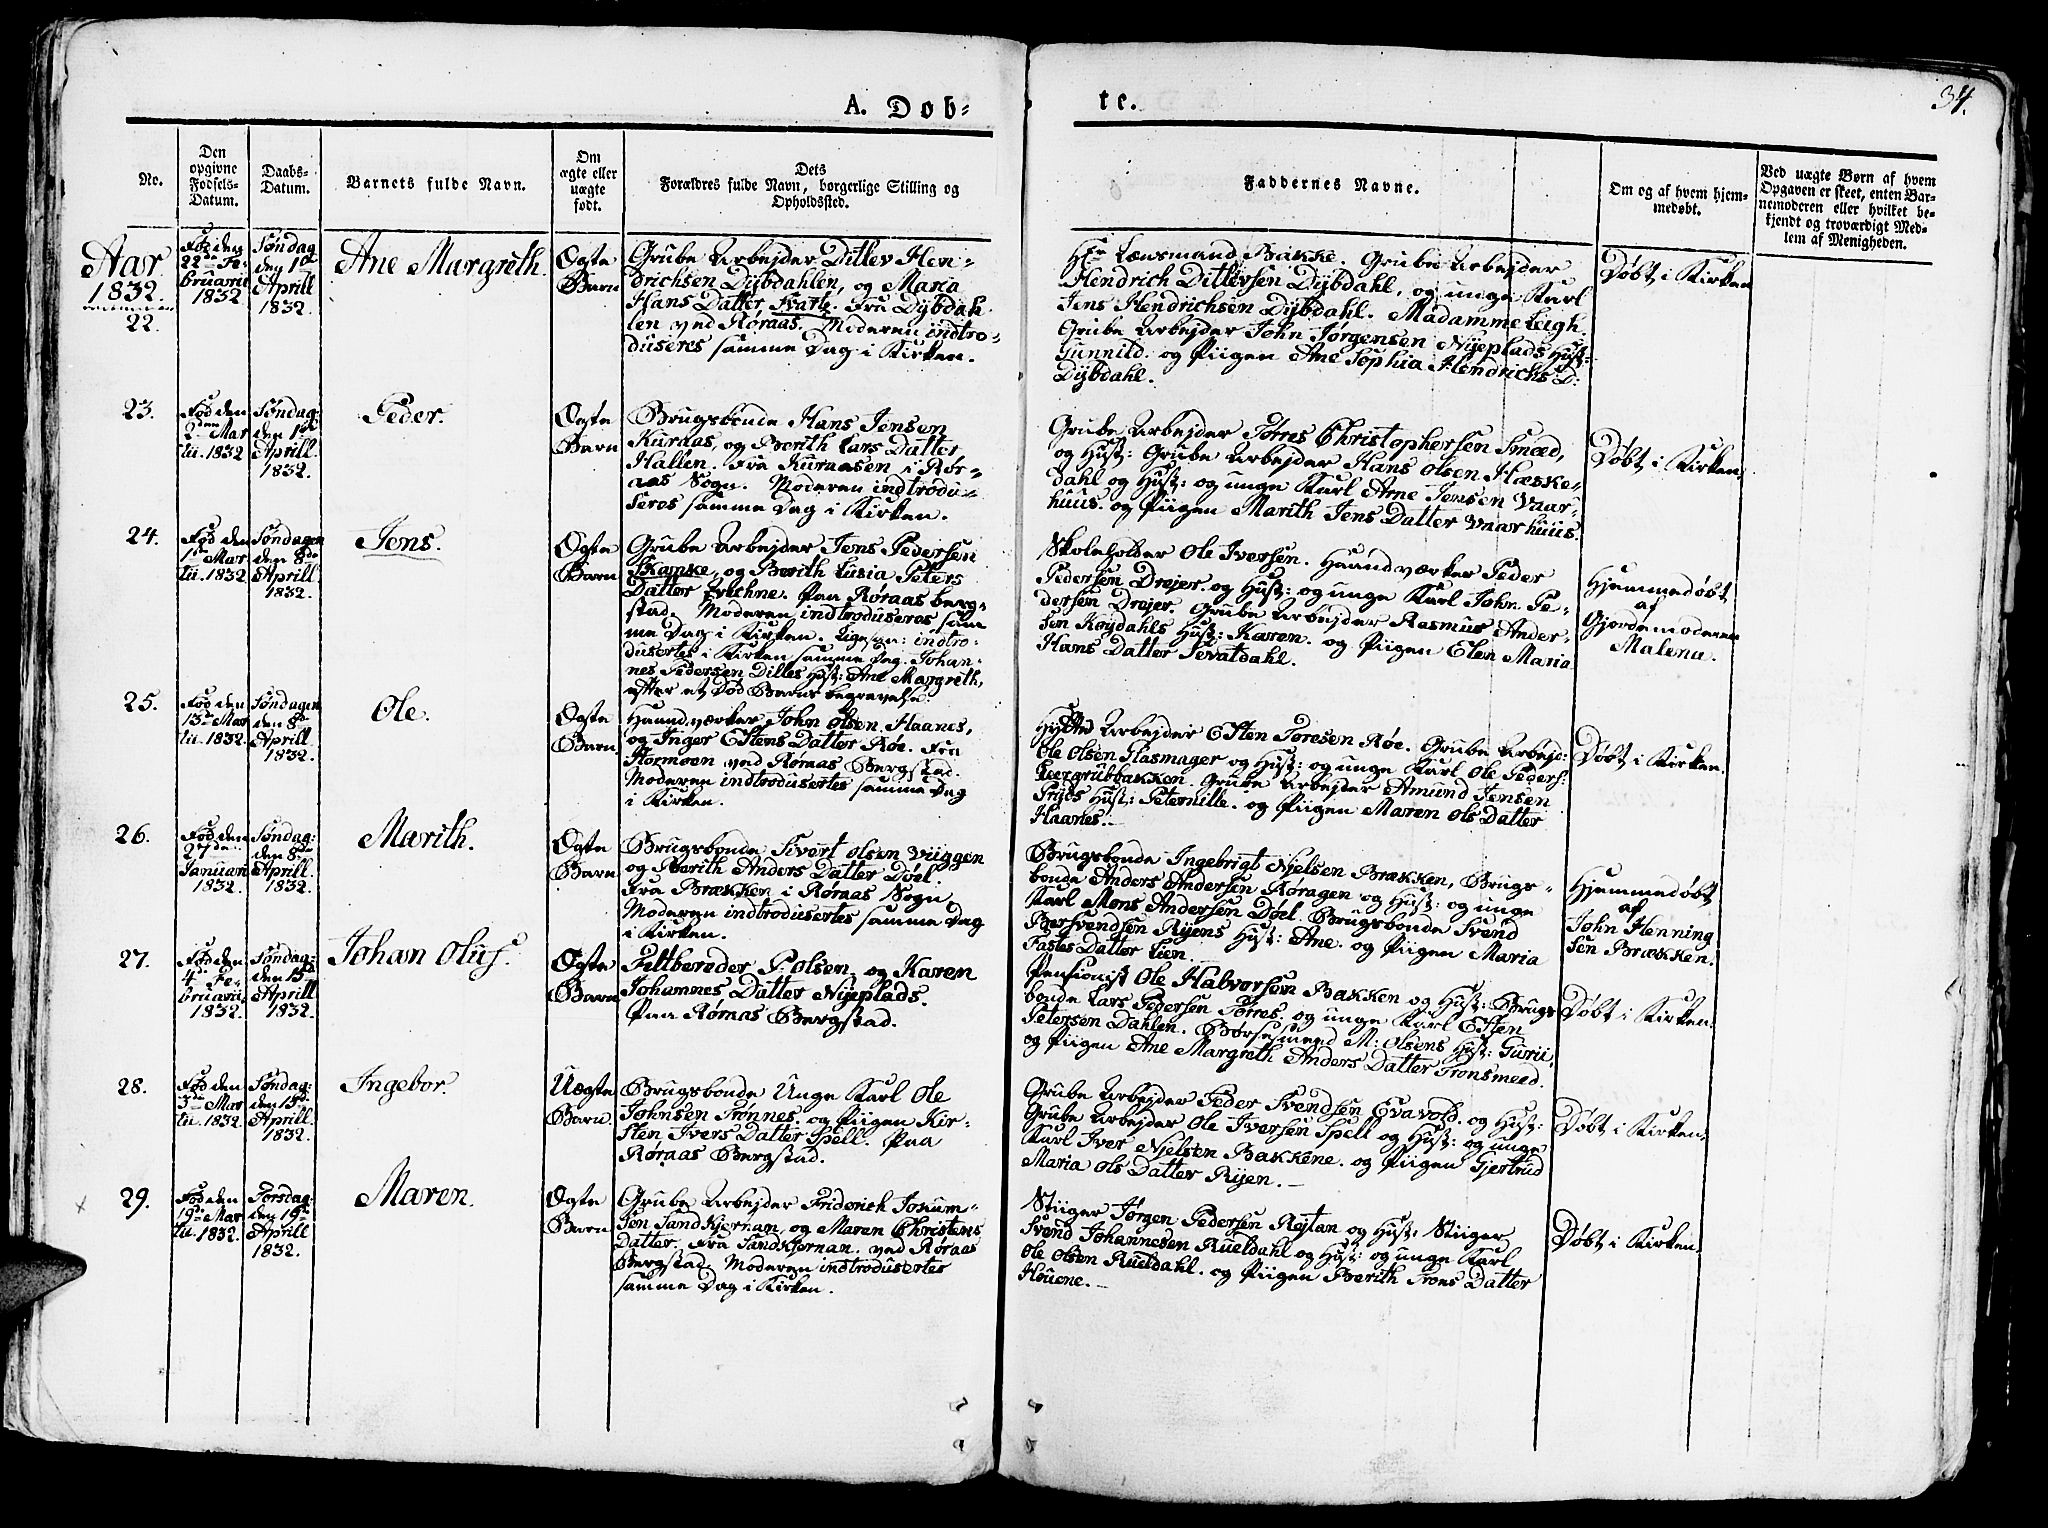 A. Døb-
te.
34.
No.
Den
opgivne
Fødsels-
Datum.
Daabs-
Datum.
Barnets fulde Navn.
Om
ægte eller
uægte
født.
Dets
Forældres fulde Navn, borgerlige Stilling og
Opholdssted.
Faddernes Navne.
Om og af hvem hjem-
medøbt.
Ved uægte Børn af hvem
Opgaven er skeet, enten Bar-
nemoderen eller hvilket be-
kjendt og troværdigt Med-
lem af Menigheden.
Aar
1832.
22.
Fød den
22de Fe-
bruarii
1832
Søndag
den 1ste
Aprill
1832.
Ane Margreth.
Ægte
Barn
Grube Arbejder Ditlev Hen-
drichsen Dÿbdahlen, og Maria
Hans Datter, Kvale. Fra Dÿbdah-
len ved Røraas. Moderen indtro-
duseres samme Dag i Kirken.
Hr. Lænsmand Bakke. Grube Arbejder
Hendrich Ditlevsen Dÿbdahl, og unge Karl
Jens Hendrichsen Dÿbdahl. Madamme Leigh.
Grube Arbejder John Jørgensen Nÿeplads Hust:
Gunnild. og Piigen Ane Sophia Hendrichs D:
Dÿbdahl.
Døbt i Kirken
23.
Fød den
2den Mar
tii. 1832
Søndag:
den 1ste
Aprill.
1832.
Peder.
Ægte
Barn
Brugsbonde Hans Jensen
Kuraas, og Berith Lars Datter
Hallen. Fra Kuraasen i Rør-
aas Sogn. Moderen indtrodu-
seres samme Dag i Kirken.
Grube Arbejder Tørres Christophersen Smed,
og Hust: Grube Arbejder Hans Olsen Hæske-
dahl og Hust: og unge Karl Arne Jensen Vaar-
huus. og Piigen Marith Jens Datter Vaarhuus.
Døbt i Kirken.
24.
Fød den
1ste Mar
tii. 1832
Søndagen
den 8de
Aprill.
1832.
Jens.
Ægte
Barn
Grube Arbejder Jens Pedersen
Skamke, og Berith Lusia Peters
Datter Erichne. Paa Røraas berg-
stad. Moderen indtroduseres sam
me Dag i Kirken. Ligesaa: indtro-
dusertes i Kirken samme Dag. Johan-
nes Pedersen Dilles Hust: Ane Margreth,
efter et Død Barns begravelse.
Skoleholder Ole Iversen. Haandværker Peder
Pedersen Drejer. og Hust: og unge Karl John Pe-
dersen Drejer. Grube Arbejder Rasmus Ander-
sen Røÿdahls Hust: Karen. og Piigen Elen Maria
Hans Datter Sevatdahl.
Hjemmedøbt
af
Gjordemoderen
Malena.
25.
Fød den
13de Mar
tii. 1832.
Søndagen
den 8de
Aprill
1832.
Ole.
Ægte
Barn.
Haandværker John Olsen Haanes,
og Inger Estens Datter Røe. Fra
Stormoen ved Røraas Bergstad.
Moderen indtrodusertes samme Dag
i Kirken.
Hÿtte Arbejder Esten Toresen Røe. Grube Arbejd:
Ole Olsen Glasmager og Hust: og unge Karl Ole Peders:
Leergrubbakken. Grube Arbejder Amund Jensen
Prÿds Hust: Peternille. og Piigen Maren Ols Datter
Haanes.
Døbt i Kirken.
26.
Fød den
27de
Januarii
1832.
Søndag:
den 8de
Aprill.
1832.
Marith.
Ægte
Barn
Brugsbonde Sivert Olsen Vüggen
og Marith Anders Datter Døel.
Fra Brækken i Røraas Sogn,
Moderen indtrodusertes samme Dag
i Kirken.
Brugsbonde Ingebrigt Njelsen Brækken, Brugs-
bonde Anders Andersen Røragen og Hust: og unge
Karl Mons Andersen Døel. Brugsbonde Svend
Bersvendsen Rÿens Hust: Ane. og Piigen Maria
Fastes Datter Lien.
Hjemmedøbt
af
John Henning
sen Brækken.
27.
Fød den
4de Fe-
bruarii.
1832.
Søndag:
den 15de
Aprill.
1832.
Johan Oluf.
Ægte
Barn
Feltbereder P. Olsen. og Karen
Johannes Datter Nÿeplads.
Paa Røraas Bergstad.
Pensionist Ole Halvorsen Bakken og Hust: Brugs
bonde Lars Pedersen Torres. og unge Karl Esten
Petersen Dahlen. Børsesmed M: Olsens Hust: Gurii,
og Piigen Ane Margreth Anders Datter Tronsmed.
Døbt i Kirken.
28.
Fød den
3de Mar
tii. 1832.
Søndag:
den 15de
Aprill.
1832.
Ingebor.
Uægte
Barn.
Brugsbonde Unge Karl Ole
Johnsen Trønnes. og Piigen Kir-
sten Ivers Datter Spell. Paa
Røraas Bergstad.
Grube Arbejder Peder Svendsen Evavold. og Hust:
Grube Arbejder Ole Iversen Spell og Hust: og unge
Karl Iver Njelsen Bakkene. og Piigen Gjertrud
Maria Ols Datter Rÿen.
Døbt i Kirken.
29.
Fød den
19de Mar
tii. 1832.
Torsdag:
den 19de
Aprill
1832.
Maren.
Ægte
Barn.
Grube Arbejder Friderich Josum-
sen Sandkjernan, og Maren Christens
Datter. Fra Sandkjernan. ved Røraas
Bergstad. Moderen indtrodusertes
samme Dag i Kirken.
Stiiger Jørgen Pedersen Rejtan og Hust: Stiiger
Svend Johannesen Rueldahl og Hust: og unge Karl
Ole Olsen Rueldahl. og Piigen Berith Trons Datter
Houene.
Døbt i Kirken.